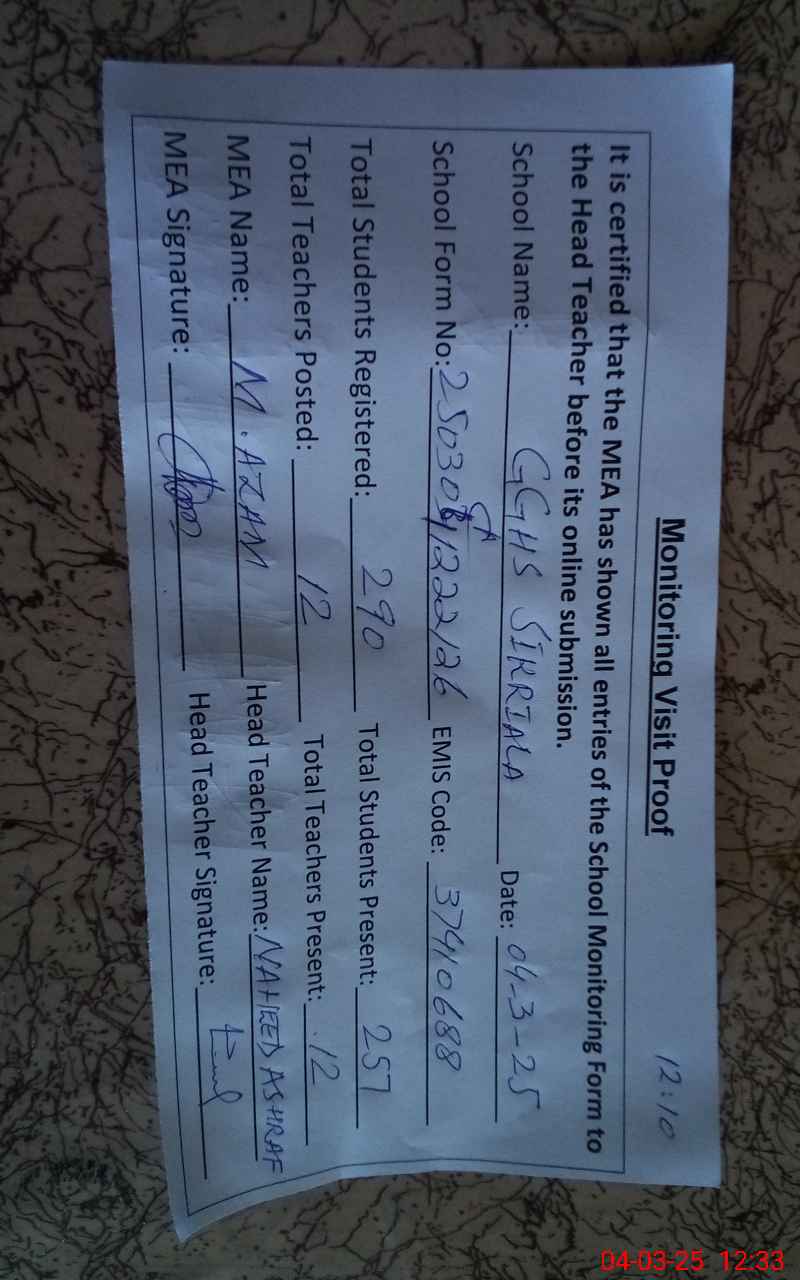 12:10
Monitoring Visit Proof
It is certified that the MEA has shown all entries of the School Monitoring Form to
the Head Teacher before its online submission.
School Name: GGHS SIRRIALA Date: 04-3-25
School Form No: EMIS Code: 37410688
Total Students Registered: 290 Total Students Present: 257
Total Teachers Posted: 12 Total Teachers Present: 12
MEA Name: M. AZAM Head Teacher Name: NAHEED ASHRAF
MEA Signature: Head Teacher Signature:
04-03-25 12:33